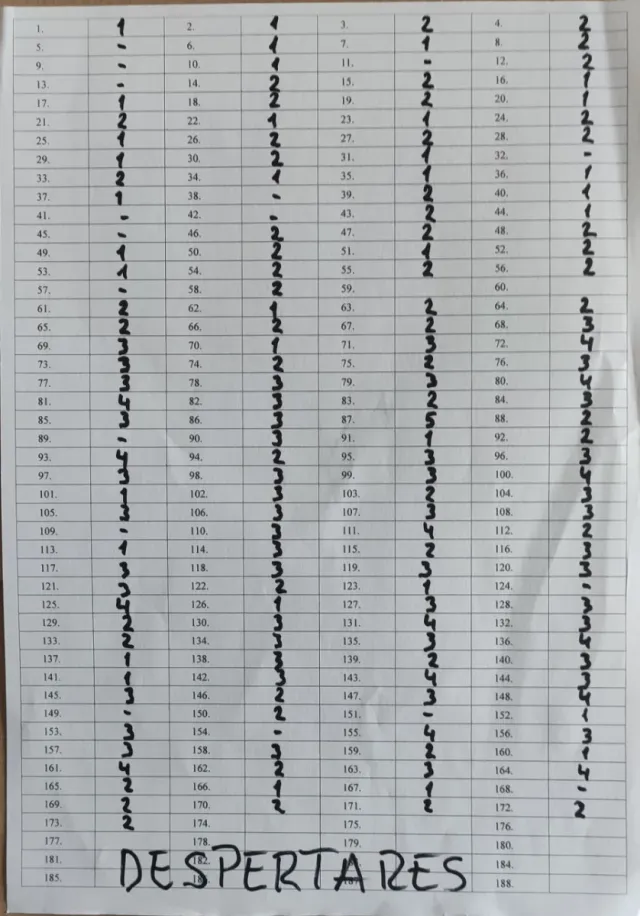 1. 1 2. 1 3. 2 4. 2
5. - 6. 1 7. 1 8. 2
9. - 10. 1 11. - 12. 2
13. - 14. 2 15. 2 16. 1
17. 1 18. 2 19. 2 20. 1
21. 2 22. 1 23. 1 24. 2
25. 1 26. 2 27. 2 28. 2
29. 1 30. 2 31. 1 32. -
33. 2 34. 1 35. 1 36. 1
37. 1 38. - 39. 2 40. 1
41. - 42. - 43. 2 44. 1
45. - 46. 2 47. 2 48. 2
49. 1 50. 2 51. 1 52. 2
53. 1 54. 2 55. 2 56. 2
57. - 58. 2 59. 60.
61. 2 62. 1 63. 2 64. 2
65. 2 66. 2 67. 2 68. 3
69. 3 70. 1 71. 3 72. 4
73. 3 74. 2 75. 2 76. 3
77. 3 78. 3 79. 3 80. 4
81. 4 82. 3 83. 2 84. 3
85. 3 86. 3 87. 5 88. 2
89. - 90. 3 91. 1 92. 2
93. 4 94. 2 95. 3 96. 3
97. 3 98. 3 99. 3 100. 4
101. 1 102. 3 103. 2 104. 3
105. 3 106. 3 107. 3 108. 3
109. - 110. 3 111. 4 112. 2
113. 1 114. 3 115. 2 116. 3
117. 3 118. 3 119. 3 120. 3
121. 3 122. 2 123. 1 124. -
125. 4 126. 1 127. 3 128. 3
129. 2 130. 3 131. 4 132. 3
133. 2 134. 3 135. 3 136. 4
137. 1 138. 3 139. 2 140. 3
141. 1 142. 3 143. 4 144. 3
145. 3 146. 2 147. 3 148. 4
149. - 150. 2 151. - 152. 1
153. 3 154. - 155. 4 156. 3
157. 3 158. 3 159. 2 160. 1
161. 4 162. 2 163. 3 164. 4
165. 2 166. 1 167. 1 168. -
169. 2 170. 2 171. 2 172. 2
173. 2 174. 175. 176.
177. 178. 179. 180.
181. 182. 184.
DESPERTARES
185. 188.